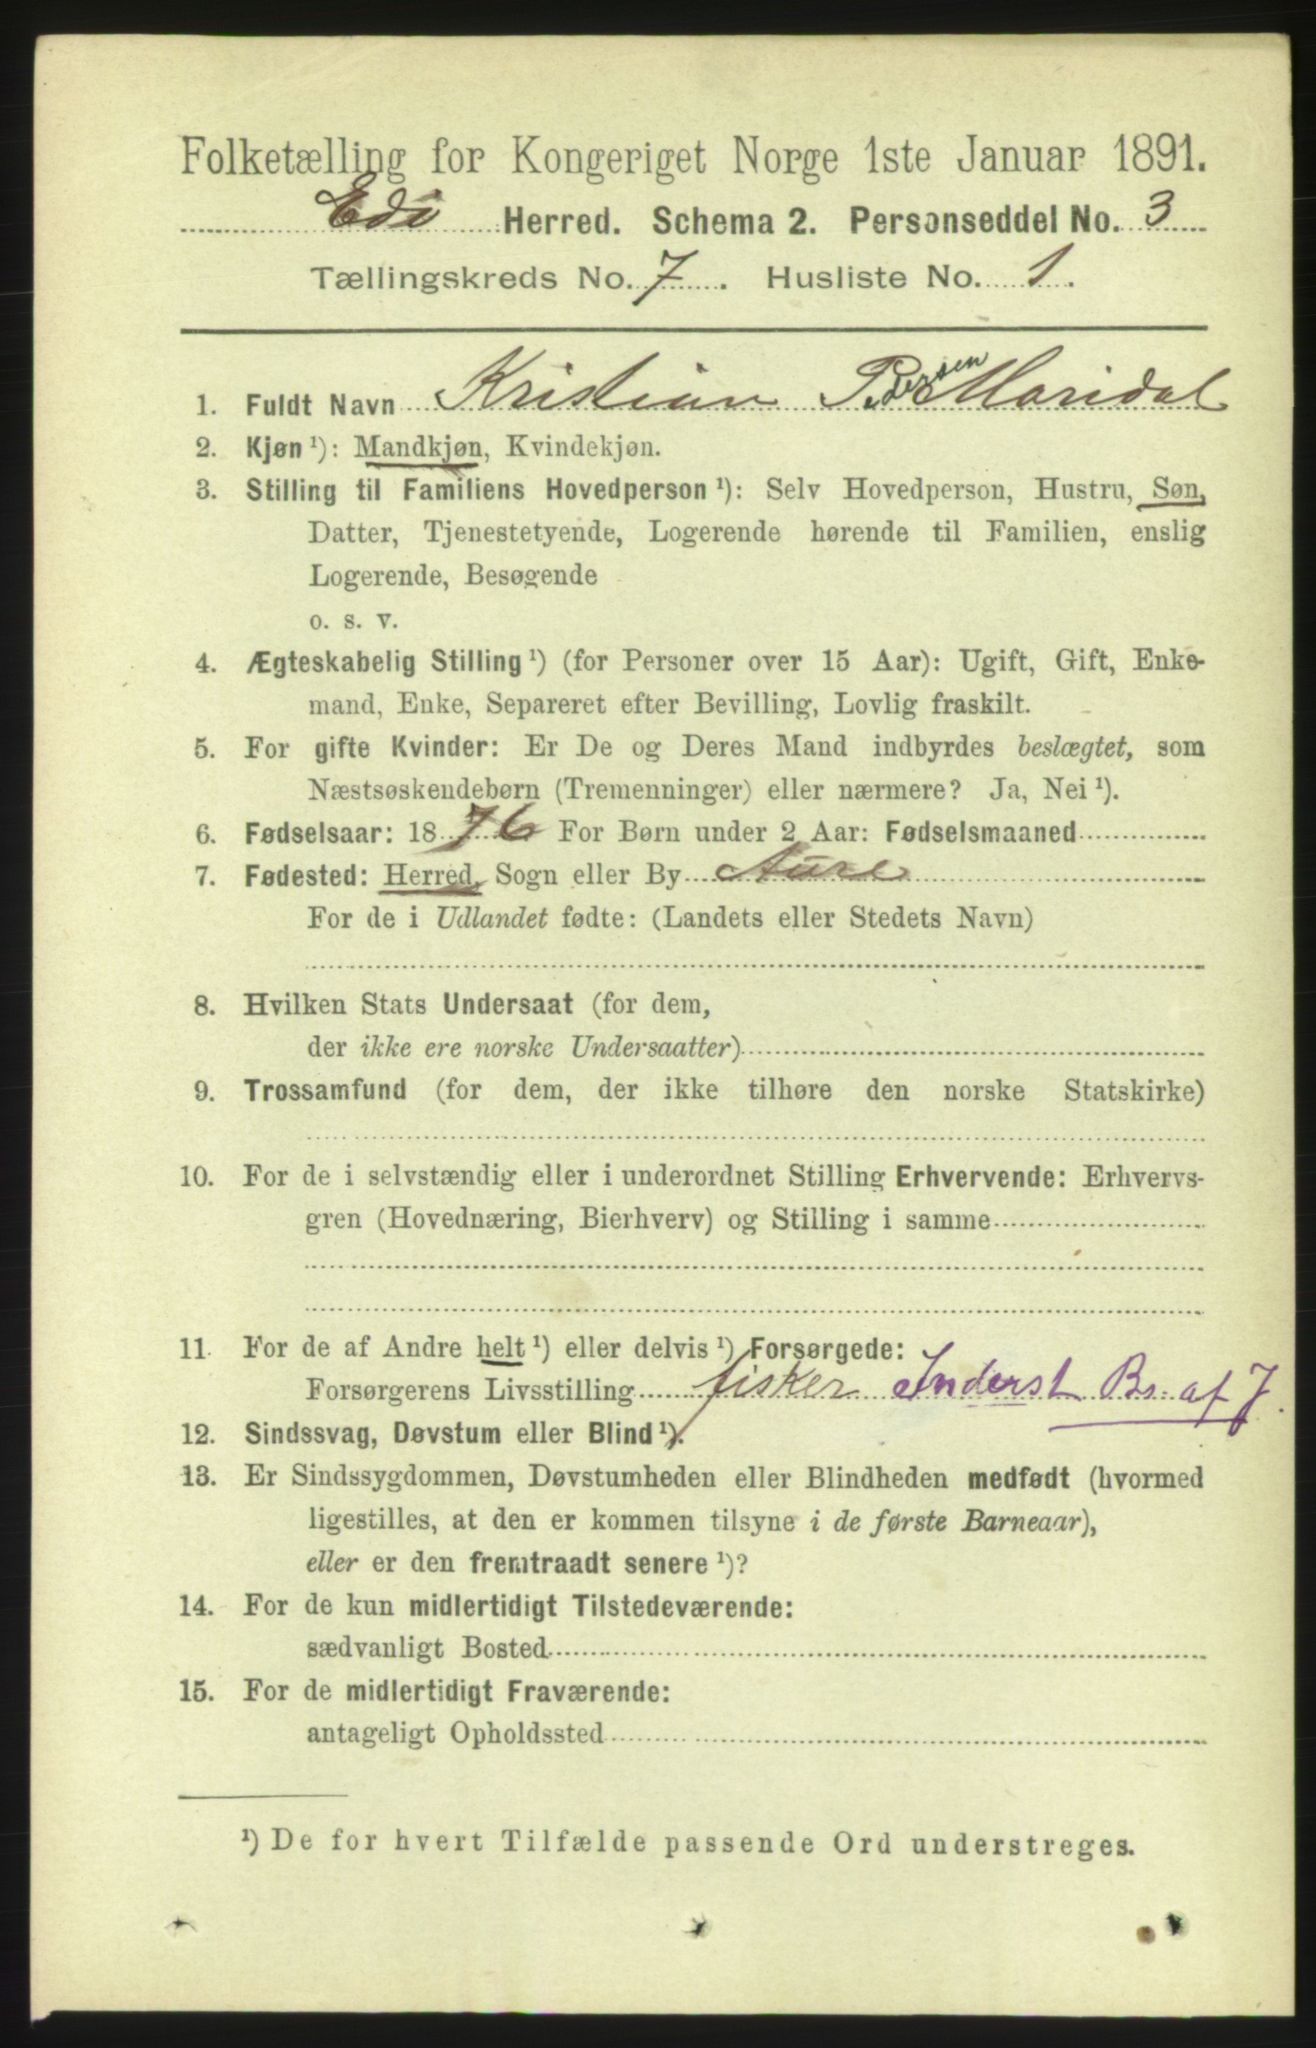 Folketælling for Kongeriget Norge 1ste Januar 1891.
Edø Herred. Schema 2. Personseddel No. 3
Tællingskreds No. 7. Husliste No. 1.
1. Fuldt Navn Kristian Pedersen Moridal
2. Kjøn ¹): Mandkjøn, Kvindekjøn.
3. Stilling til Familiens Hovedperson ¹): Selv Hovedperson, Hustru, Søn,
Datter, Tjenestetyende, Logerende hørende til Familien, enslig
Logerende, Besøgende
o. s. v.
4. Ægteskabelig Stilling ¹) (for Personer over 15 Aar): Ugift, Gift, Enke-
mand, Enke, Separeret efter Bevilling, Lovlig fraskilt.
5. For gifte Kvinder: Er De og Deres Mand indbyrdes beslægtet, som
Næstsøskendebørn (Tremenninger) eller nærmere? Ja, Nei ¹).
6. Fødselsaar: 1876 For Børn under 2 Aar: Fødselsmaaned
7. Fødested: Herred, Sogn eller By Aure
For de i Udlandet fødte: (Landets eller Stedets Navn)
8. Hvilken Stats Undersaat (for dem,
der ikke ere norske Undersaatter)
9. Trossamfund (for dem, der ikke tilhøre den norske Statskirke)
10. For de i selvstændig eller i underordnet Stilling Erhvervende: Erhvervs-
gren (Hovednæring, Bierhverv) og Stilling i samme
11. For de af Andre helt ¹) eller delvis ¹) Forsørgede:
Forsørgerens Livsstilling fisker Inderst Br. af J.
12. Sindssvag, Døvstum eller Blind ¹).
13. Er Sindssygdommen, Døvstumheden eller Blindheden medfødt (hvormed
ligestilles, at den er kommen tilsyne i de første Barneaar),
eller er den fremtraadt senere ¹)?
14. For de kun midlertidigt Tilstedeværende:
sædvanligt Bosted
15. For de midlertidigt Fraværende:
antageligt Opholdssted
¹) De for hvert Tilfælde passende Ord understreges.